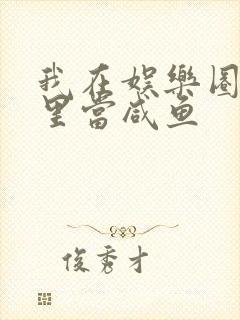 我在娱樂圈
里當咸鱼
俊秀才